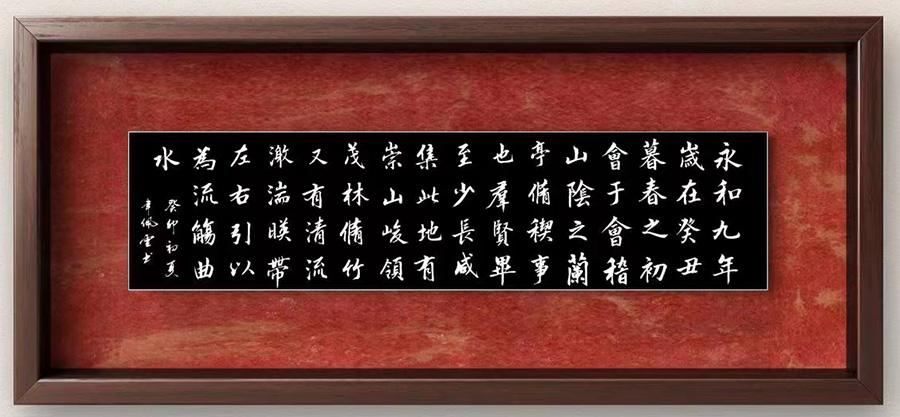 永和九年
歲在癸丑
暮春之初
會于會稽
山陰之蘭
亭脩稧事
也羣賢畢
至少長咸
集此地有
崇山峻領
茂林脩竹
又有清流
激湍暎帶
左右引以
為流觴曲
水
癸卯初夏
佩雲书